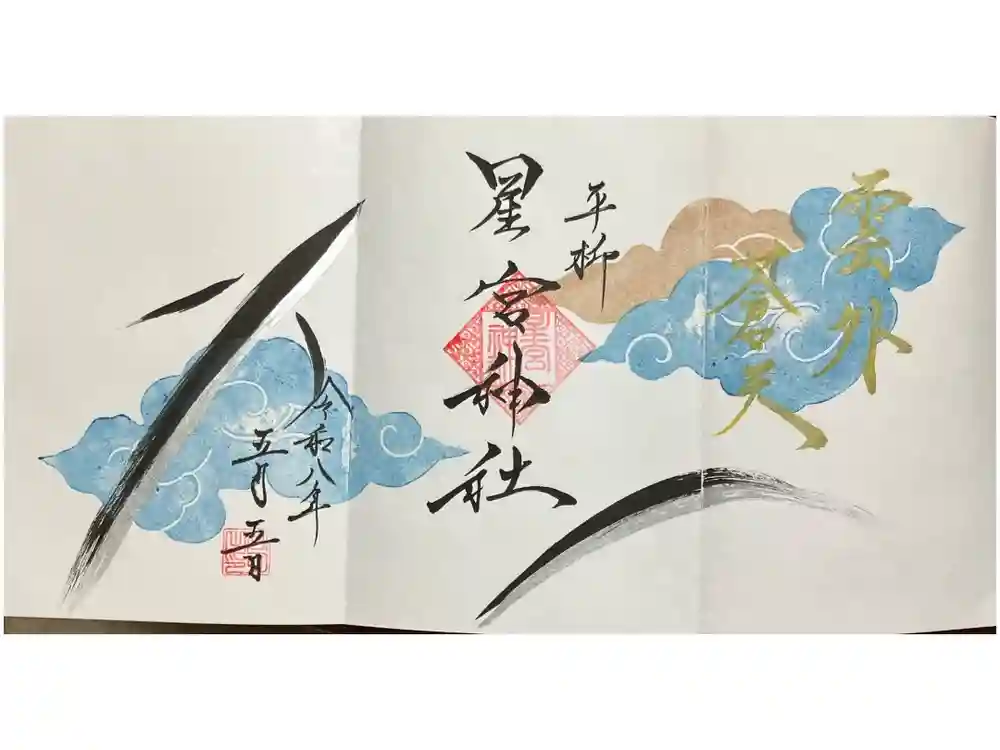 雲外
蒼天
平柳
星宮神社
令和八年
五月五日